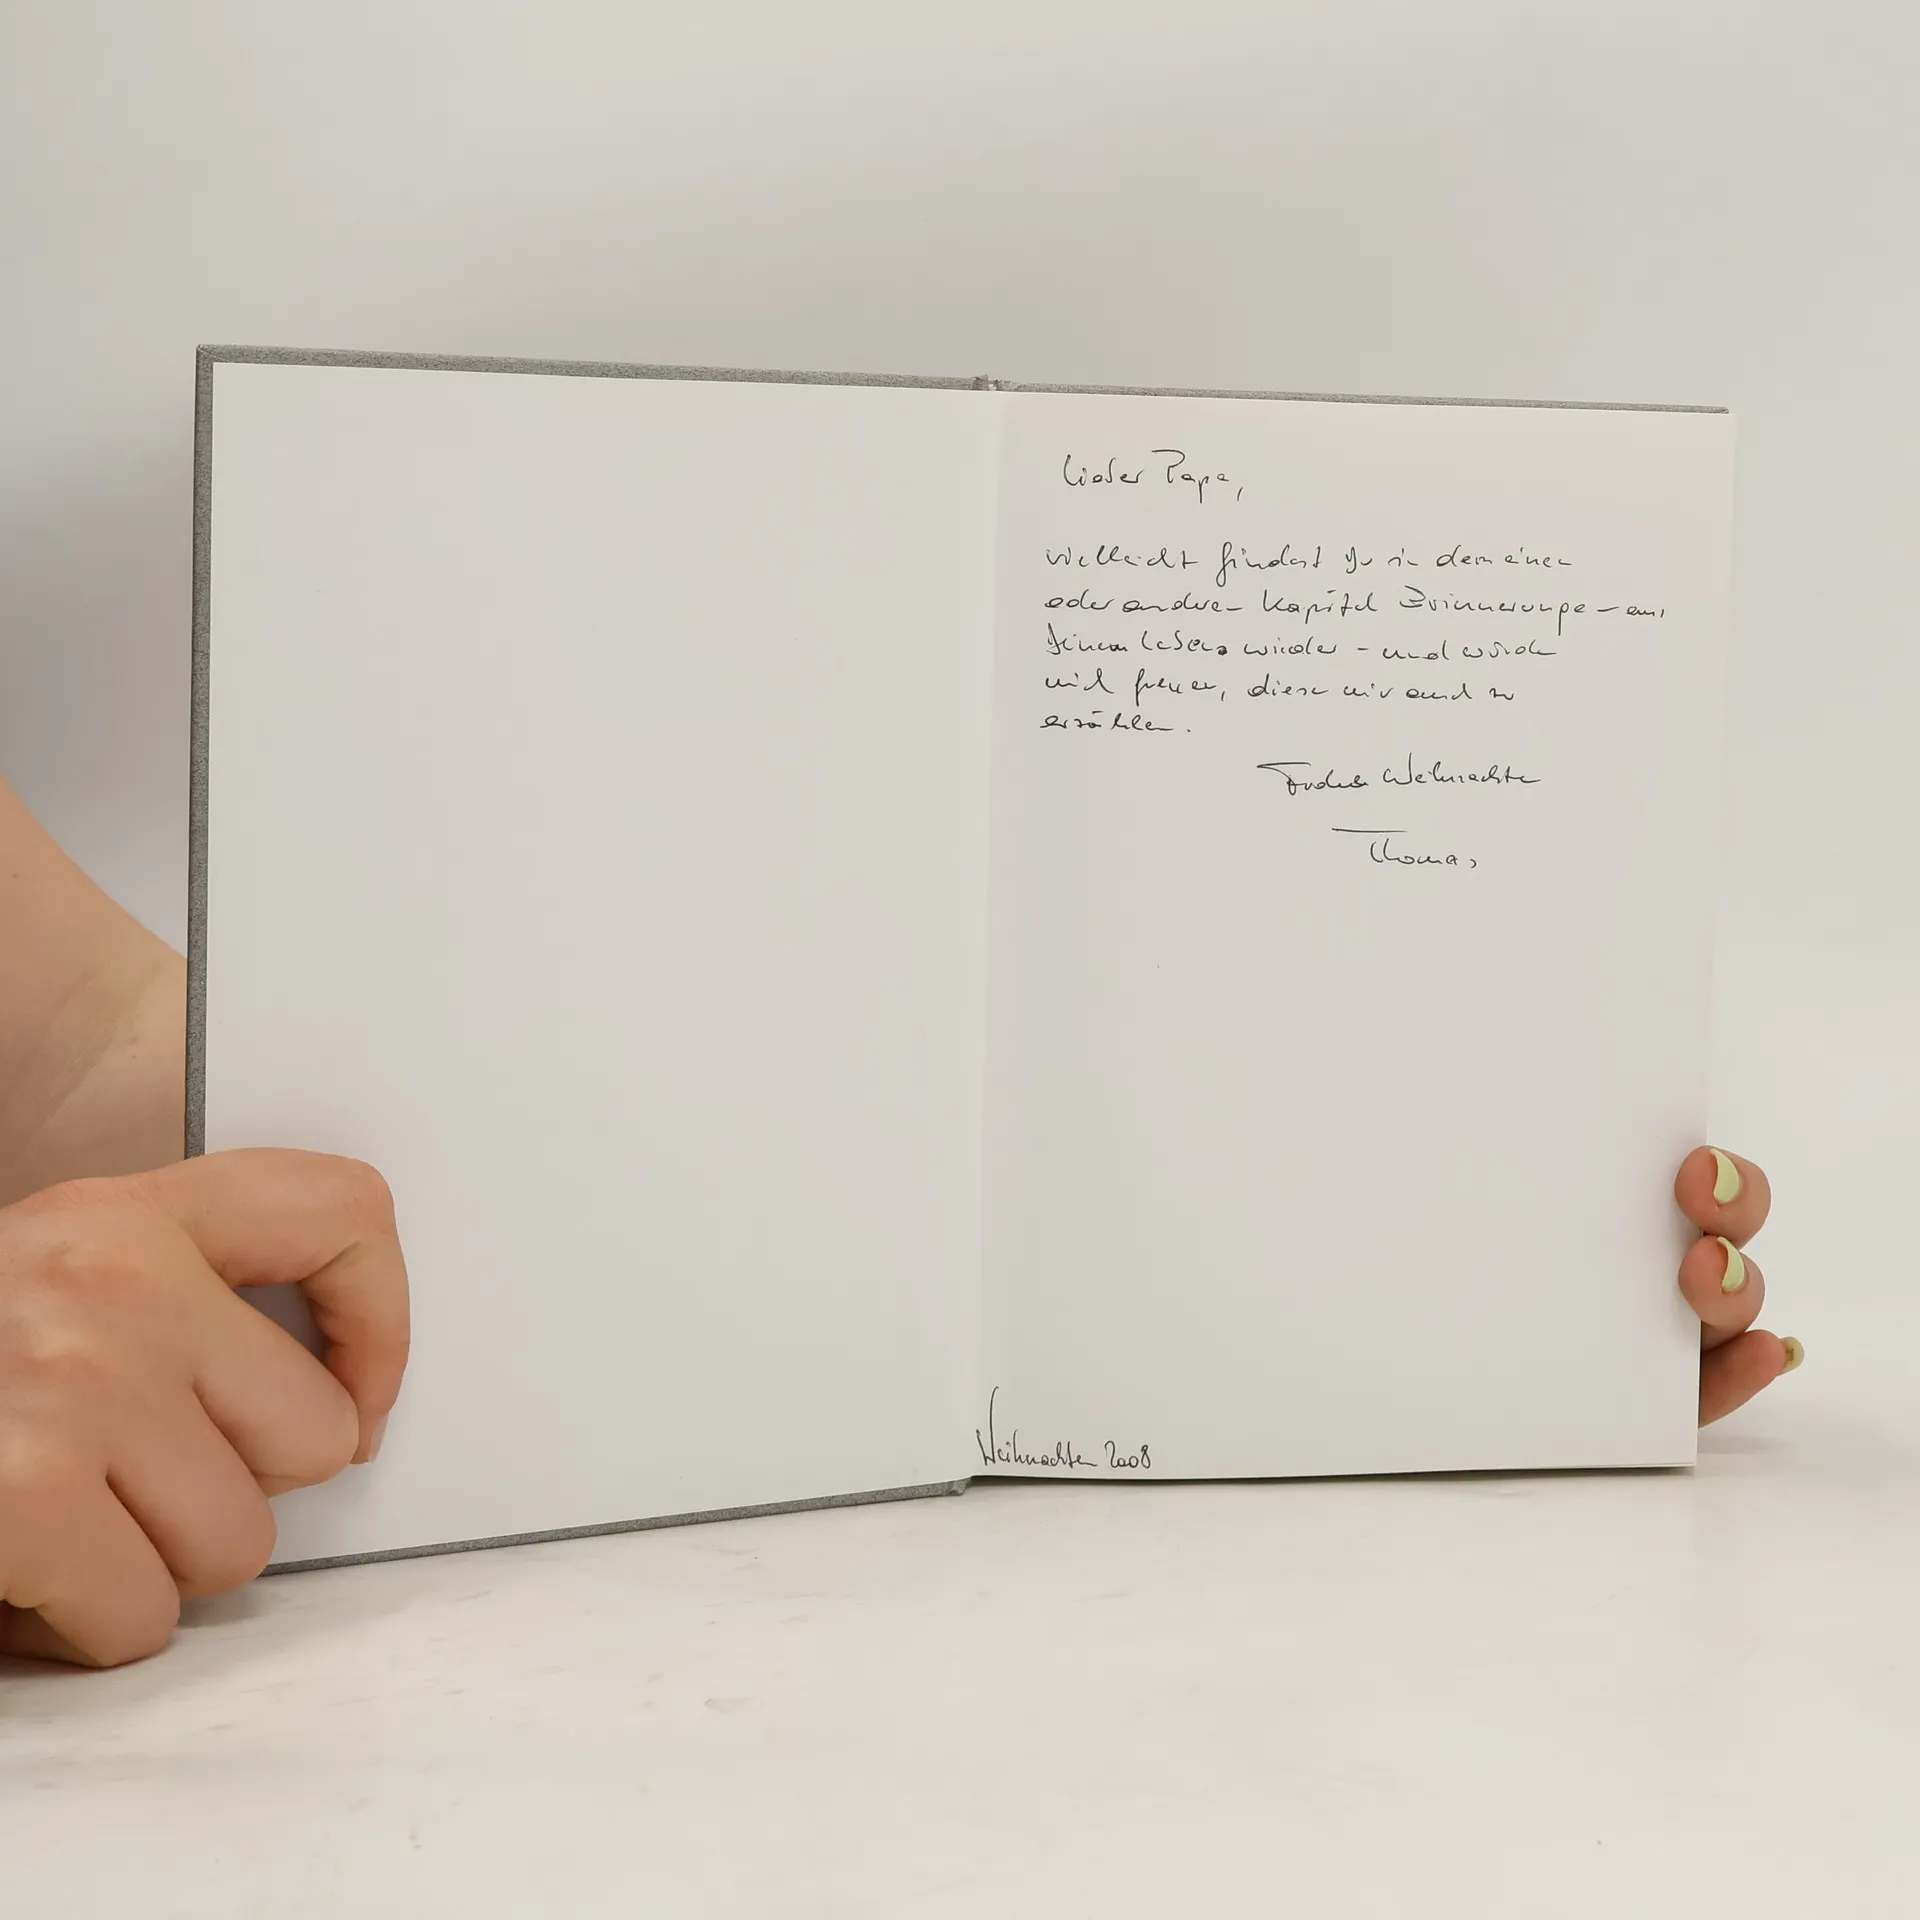 Lieber Papa,
vielleicht findest Du in dem einen
oder anderen Kapitel Erinnerungen aus
Deinem Leben wieder - und würde
mich freuen, diese mir auch zu
erzählen.
Frohe Weihnachten
Thomas
Weihnachten 2008